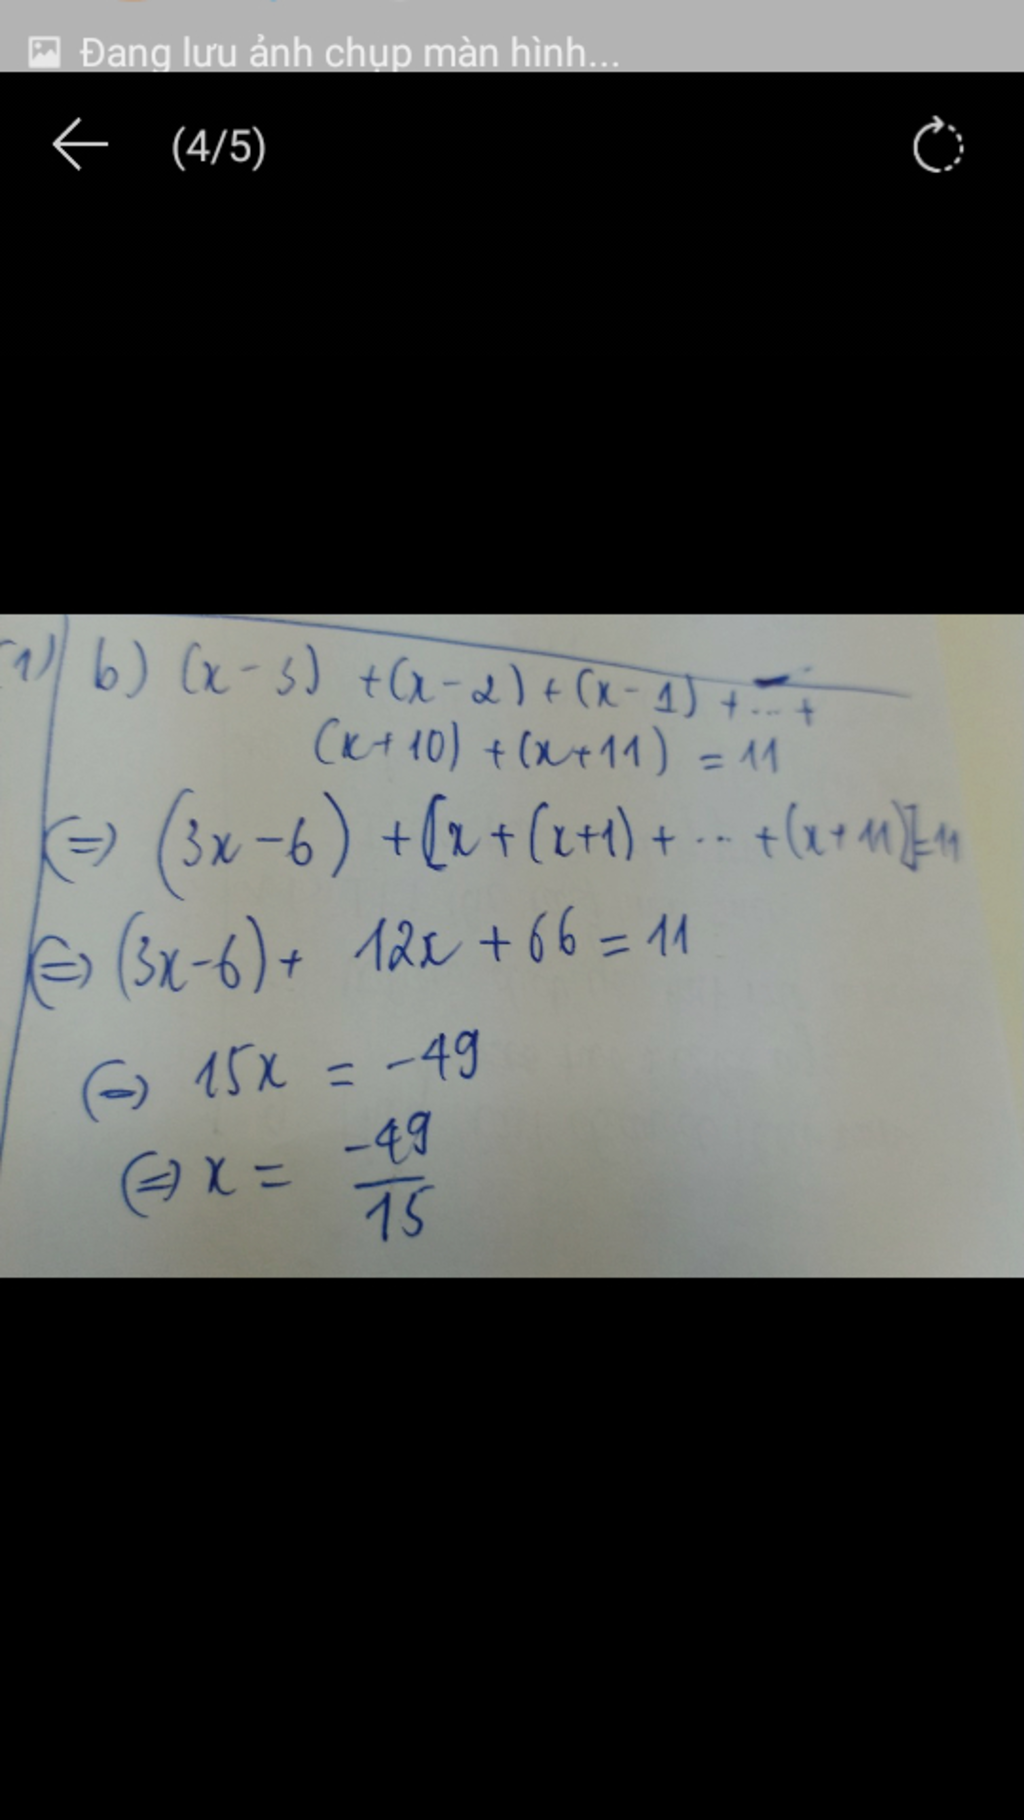 Đang lưu ảnh chụp màn hình...
(4/5)
1) b) (x - 3) + (x - 2) + (x - 1) + ... +
(x + 10) + (x + 11) = 11
(=) (3x - 6) + [x + (x + 1) + ... + (x + 11)] = 11
(=) (3x - 6) + 12x + 66 = 11
(=) 15x = -49
(=) x = -49/15